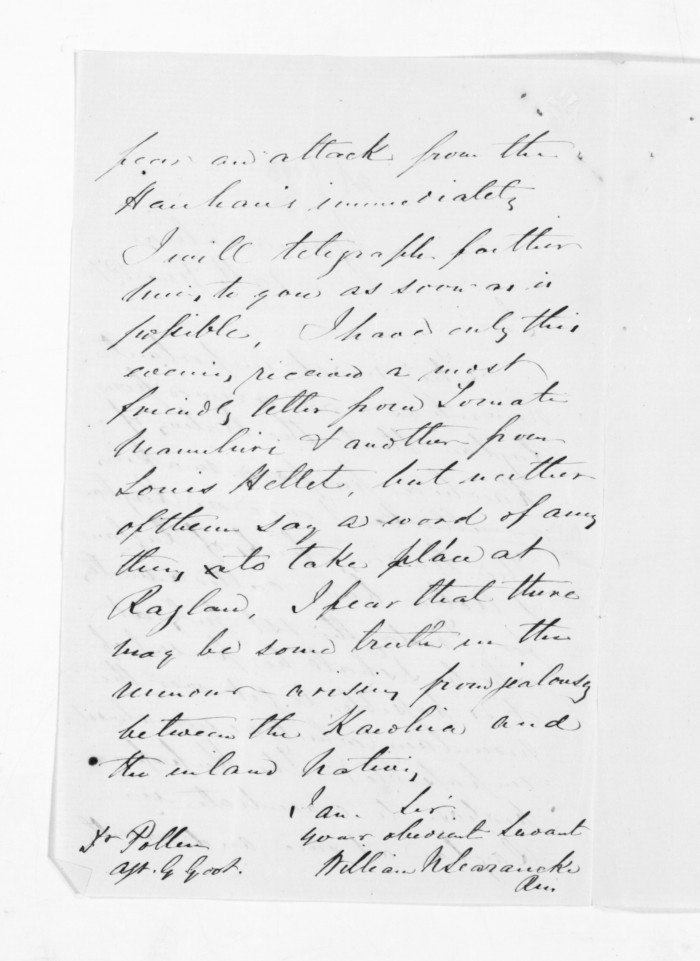 fear an attack from the
Hauhau's immediately
I will telegraph further
news to you as soon as is
possible, I have only this
evening received a most
friendly letter from
& another from
Louis Hettet, but neither
of them say a word of any
thing to take place at
Raglan, I fear that there
may be some truth in the
rumour arising from jealousy
between the Kawhia and
the inland natives,
I am Sir
your obedient Servant
William N Searancke
RM
Dr Pollen
Agt. G Govt.